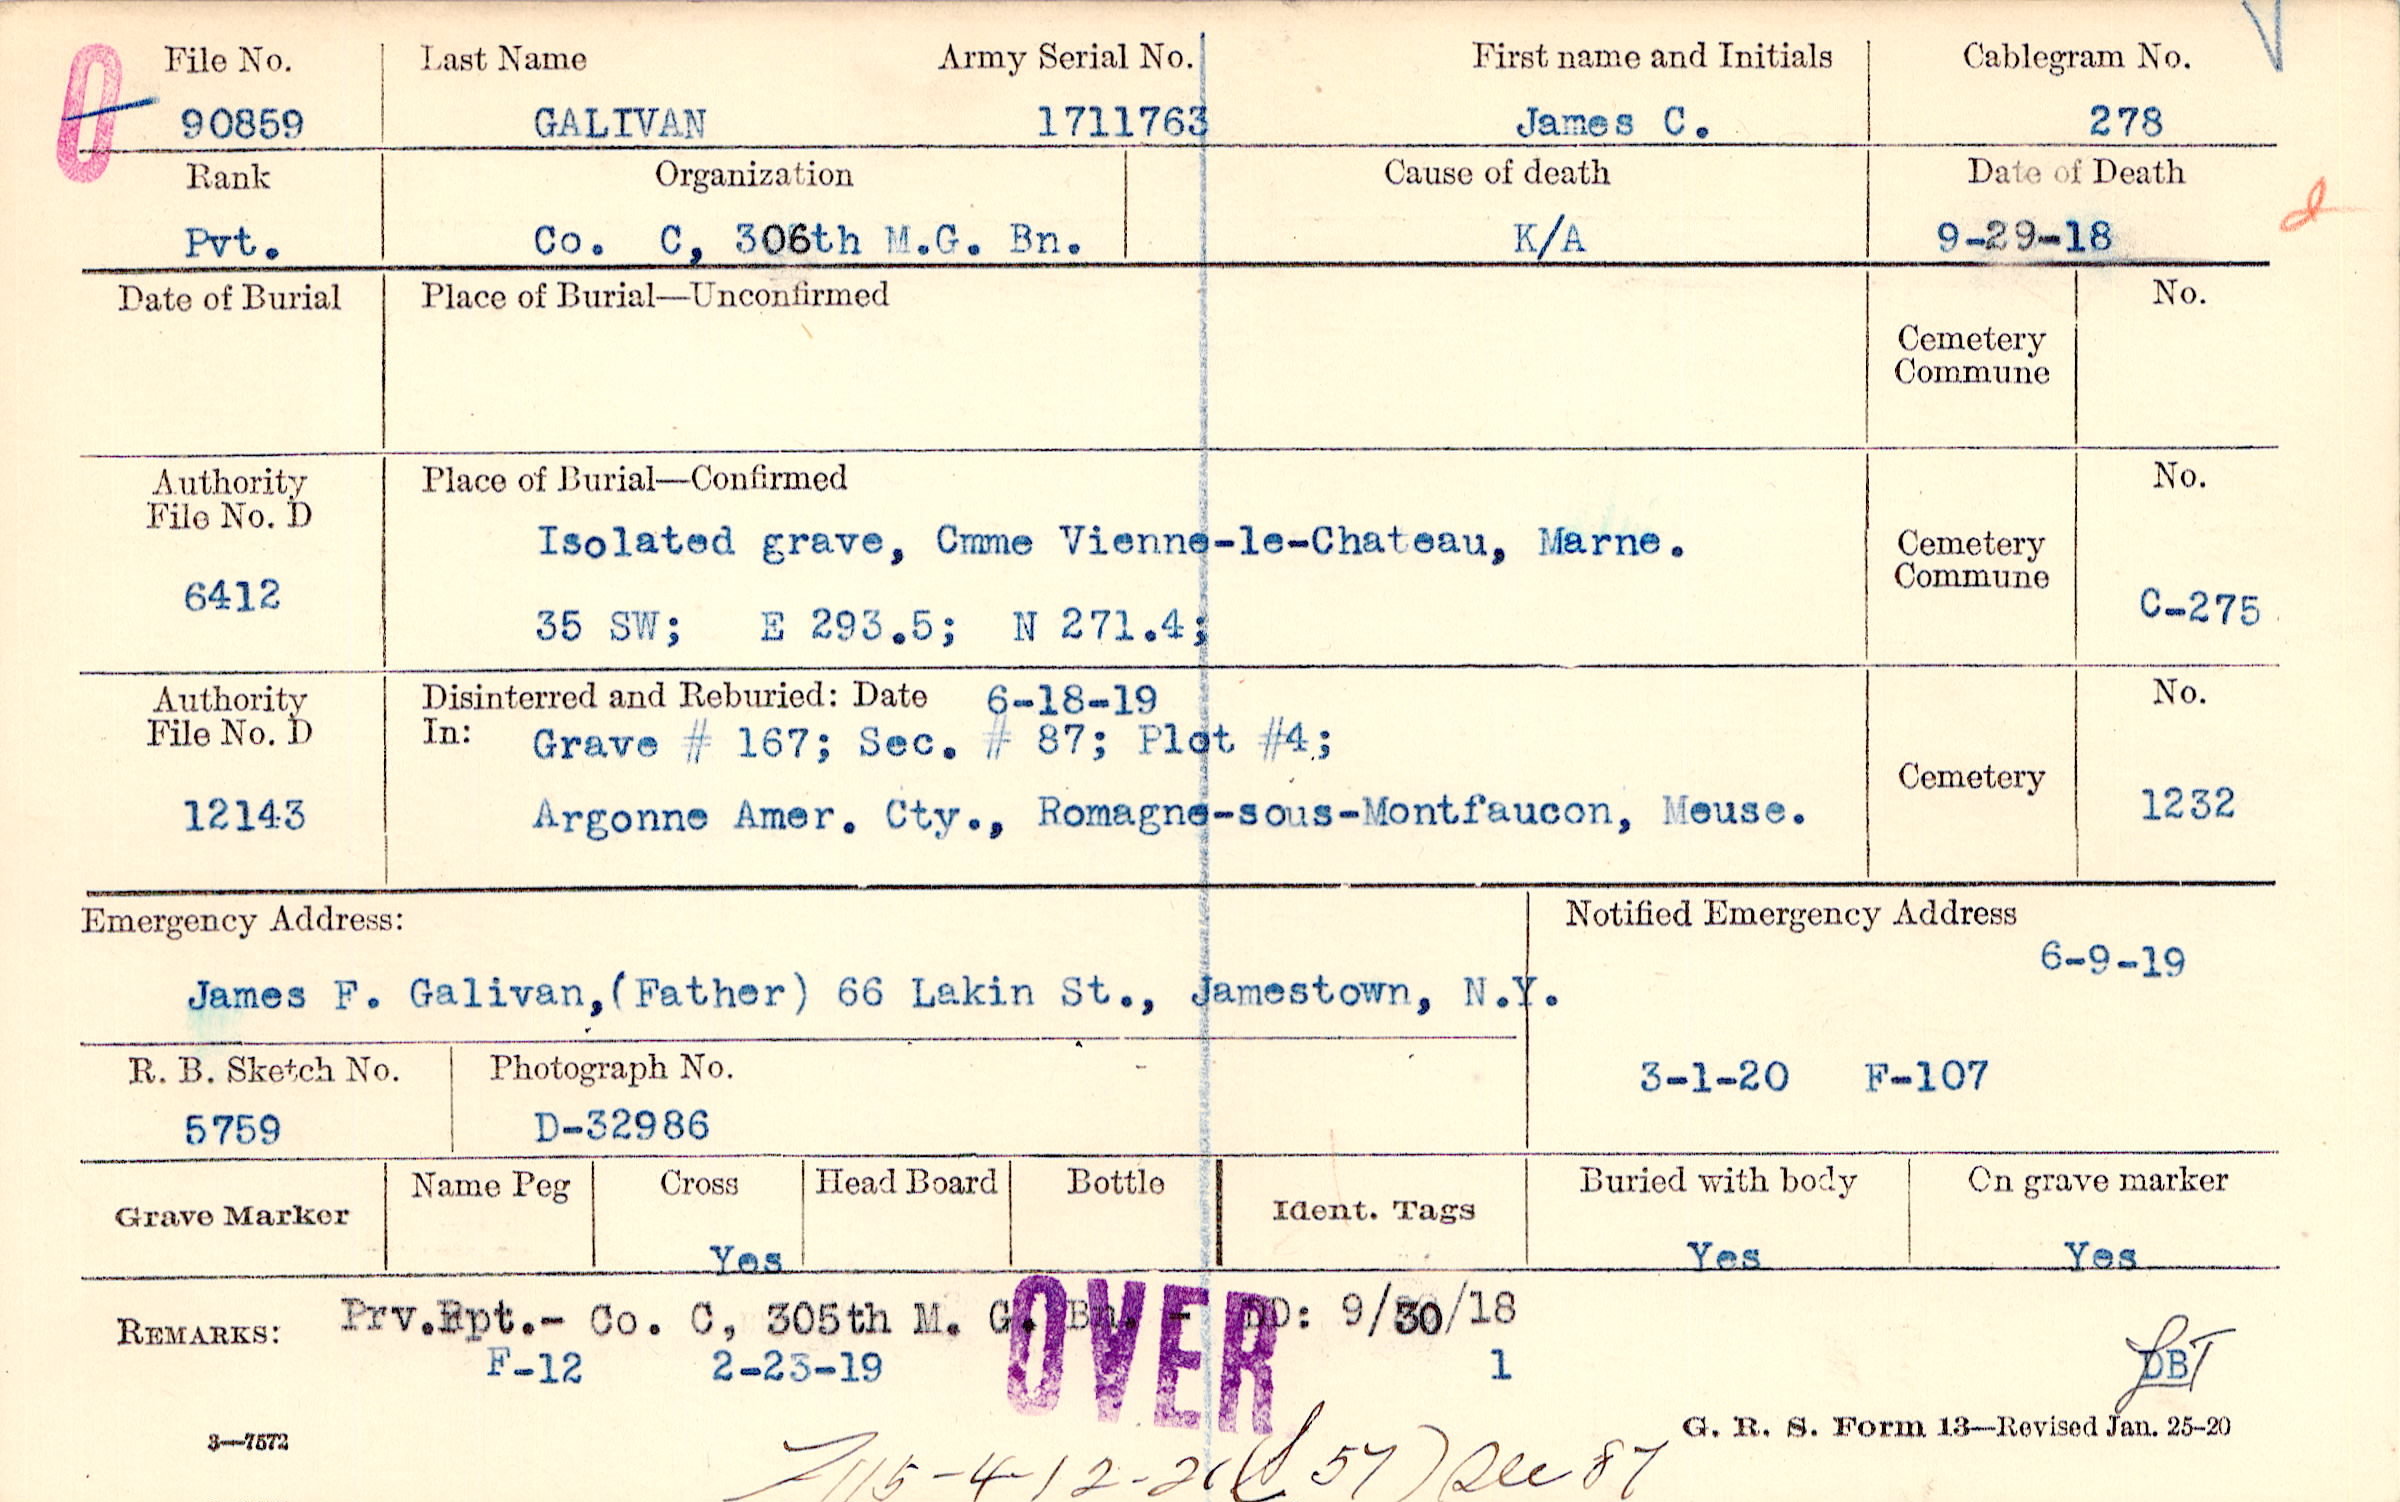 O
File No. Last Name Army Serial No. First name and Initials Cablegram No.
90859 GALIVAN 1711763 James C. 278
Rank Organization Cause of death Date of Death
Pvt. Co. C, 306th M.G. Bn. K/A 9-29-18
Date of Burial Place of Burial—Unconfirmed No.
Cemetery
Commune
Authority Place of Burial—Confirmed No.
File No. D
Isolated grave, Cmme Vienne-le-Chateau, Marne. Cemetery
Commune
6412 C-275
35 SW; E 293.5; N 271.4;
Authority Disinterred and Reburied: Date 6-18-19 No.
File No. D In: Grave # 167; Sec. # 87; Plot #4;
Cemetery
12143 Argonne Amer. Cty., Romagne-sous-Montfaucon, Meuse. 1232
Emergency Address: Notified Emergency Address
6-9-19
James F. Galivan,(Father) 66 Lakin St., Jamestown, N.Y.
R. B. Sketch No. Photograph No. 3-1-20 F-107
5759 D-32986
Name Peg Cross Head Board Bottle Buried with body On grave marker
Grave Marker Ident. Tags
Yes Yes Yes
REMARKS: Prv.Rpt.- Co. C, 305th M. G. Bn. - DD: 9/30/18
OVER
F-12 2-23-19 1 DBT
3—7572 G. R. S. Form 13—Revised Jan. 25-20
57) 87